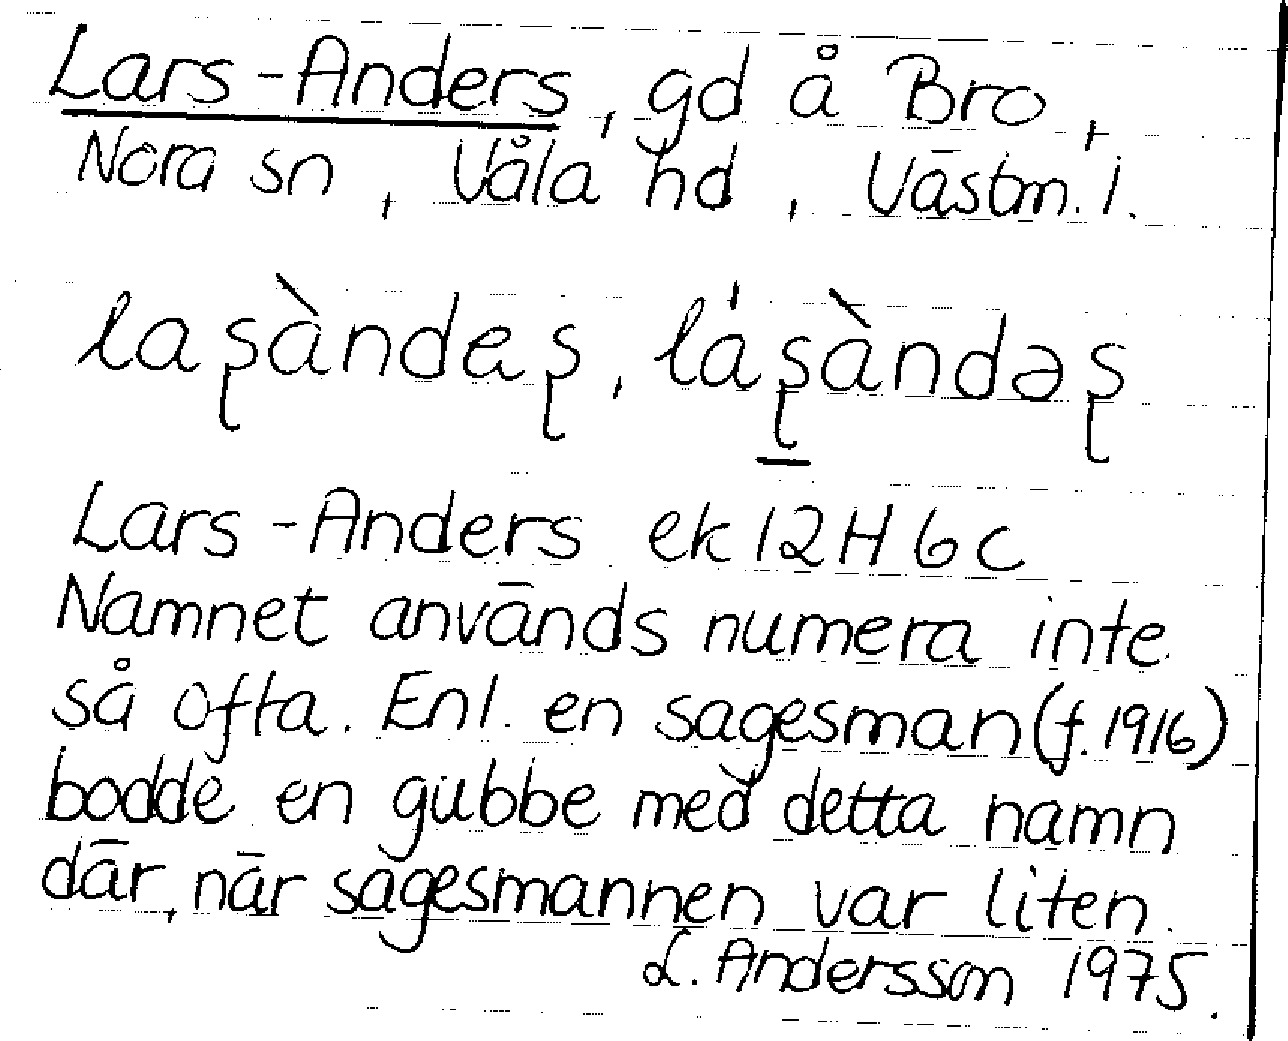 Lars-Anders, gd å Bro,
Nora sn, Våla hd, Västm. l.
laʂàndeʂ, láʂàndəʂ
Lars-Anders ek 12H 6c
Namnet används numera inte
så ofta. Enl. en sagesman (f. 1916)
bodde en gubbe med detta namn
där, när sagesmannen var liten.
L. Andersson 1975.